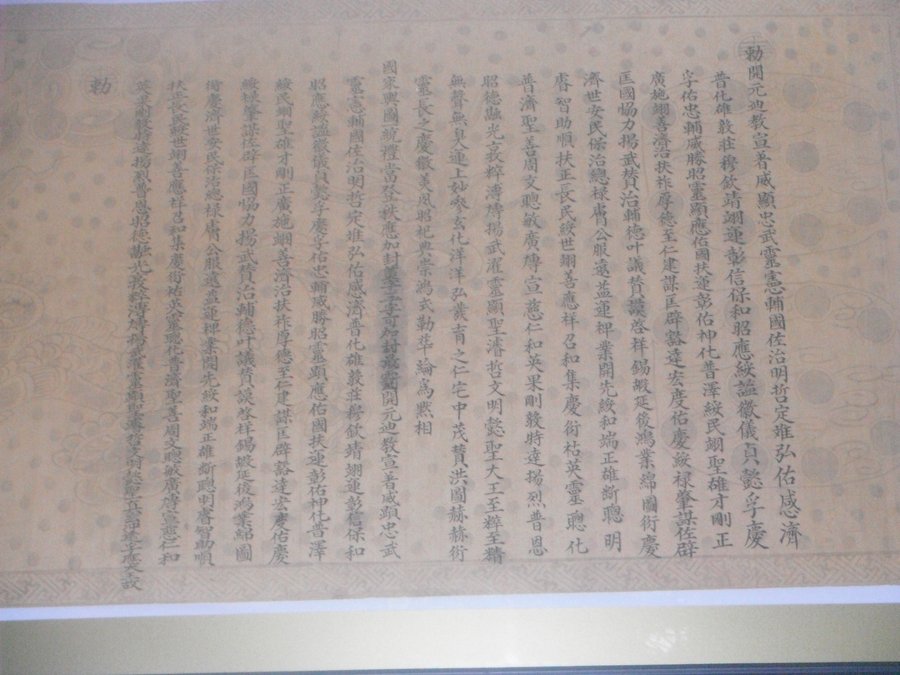 勅開元迪教宣著威顯忠武靈憲輔國佐治明哲定难弘佑感濟
普化雄敦莊穆欽靖翊運彰信保和昭應綏謐徽儀貞懿孚慶
字佑忠輔威勝昭靈顯應佑國扶運彰佑神化普澤綏民翊聖雄才剛正
廣施翊善濟洽扶祚厚德至仁建謀匡辟豁達宏度佑慶綏禄肇謀佐辟
匡國恊力揚武賛治輔德叶議賛謨啓祥錫嘏延後鴻業綿圖衍慶
濟世安民保治總禄膚公服遠益運裨業開先綏和端正雄断聰明
睿智助順扶正長民綏世翊善應祥召和集慶衍祐英靈聰化
普濟聖善周文聰敏廣慱宣慈仁和英果剛毅時達揚烈普恩
昭德融光衷粹濟慱揚武濯靈顯聖濬哲文明懿聖大王至粹至精
無聲無臭運上妙於玄化洋洋弘載育之仁宅中茂賛洪圖赫赫衍
靈長之慶徽美夙昭祀典崇鴻式勒華綸爲黙相
國家興國統禮當登秩應加封美字可加封開元迪教宣著威顯忠武
靈憲輔國佐治明哲定难弘佑感濟普化雄敦莊穆欽靖翊運彰信保和
昭應綏謐徽儀貞懿孚慶字佑忠輔威勝昭靈顯應佑國扶運彰佑神化普澤
綏民翊聖雄才剛正廣施翊善濟洽扶祚厚德至仁建謀匡辟豁達宏度佑慶
綏禄肇謀佐辟匡國恊力揚武賛治輔德叶議賛謨啓祥錫嘏延後鴻業綿圖
衍慶濟世安民保治總禄膚公服遠益運裨業開先綏和端正雄断聰明睿智助順
扶正長民綏世翊善應祥召和集慶衍祐英靈聰化普濟聖善周文聰敏廣慱宣慈仁和
英果剛毅時達揚烈普恩昭德融光衷粹濟慱揚武濯靈顯聖濬哲文明懿聖大王故
勅